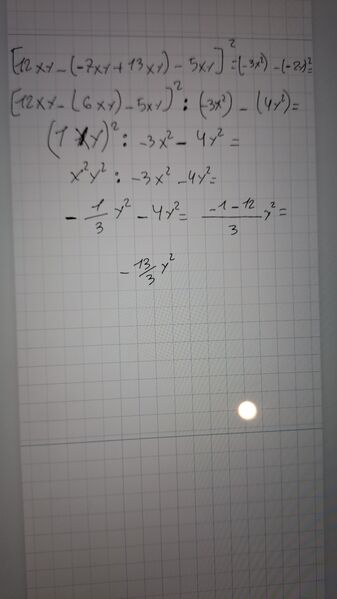 [12xy-(-7xy+13xy)-5xy]²:(-3x²)-(-2y)²=
[12xy-(6xy)-5xy]²:(-3x²)-(4y²)=
(1xy)²:-3x²-4y²=
x²y²:-3x²-4y²=
-1/3y²-4y²= -1-12/3y²=
-13/3y²